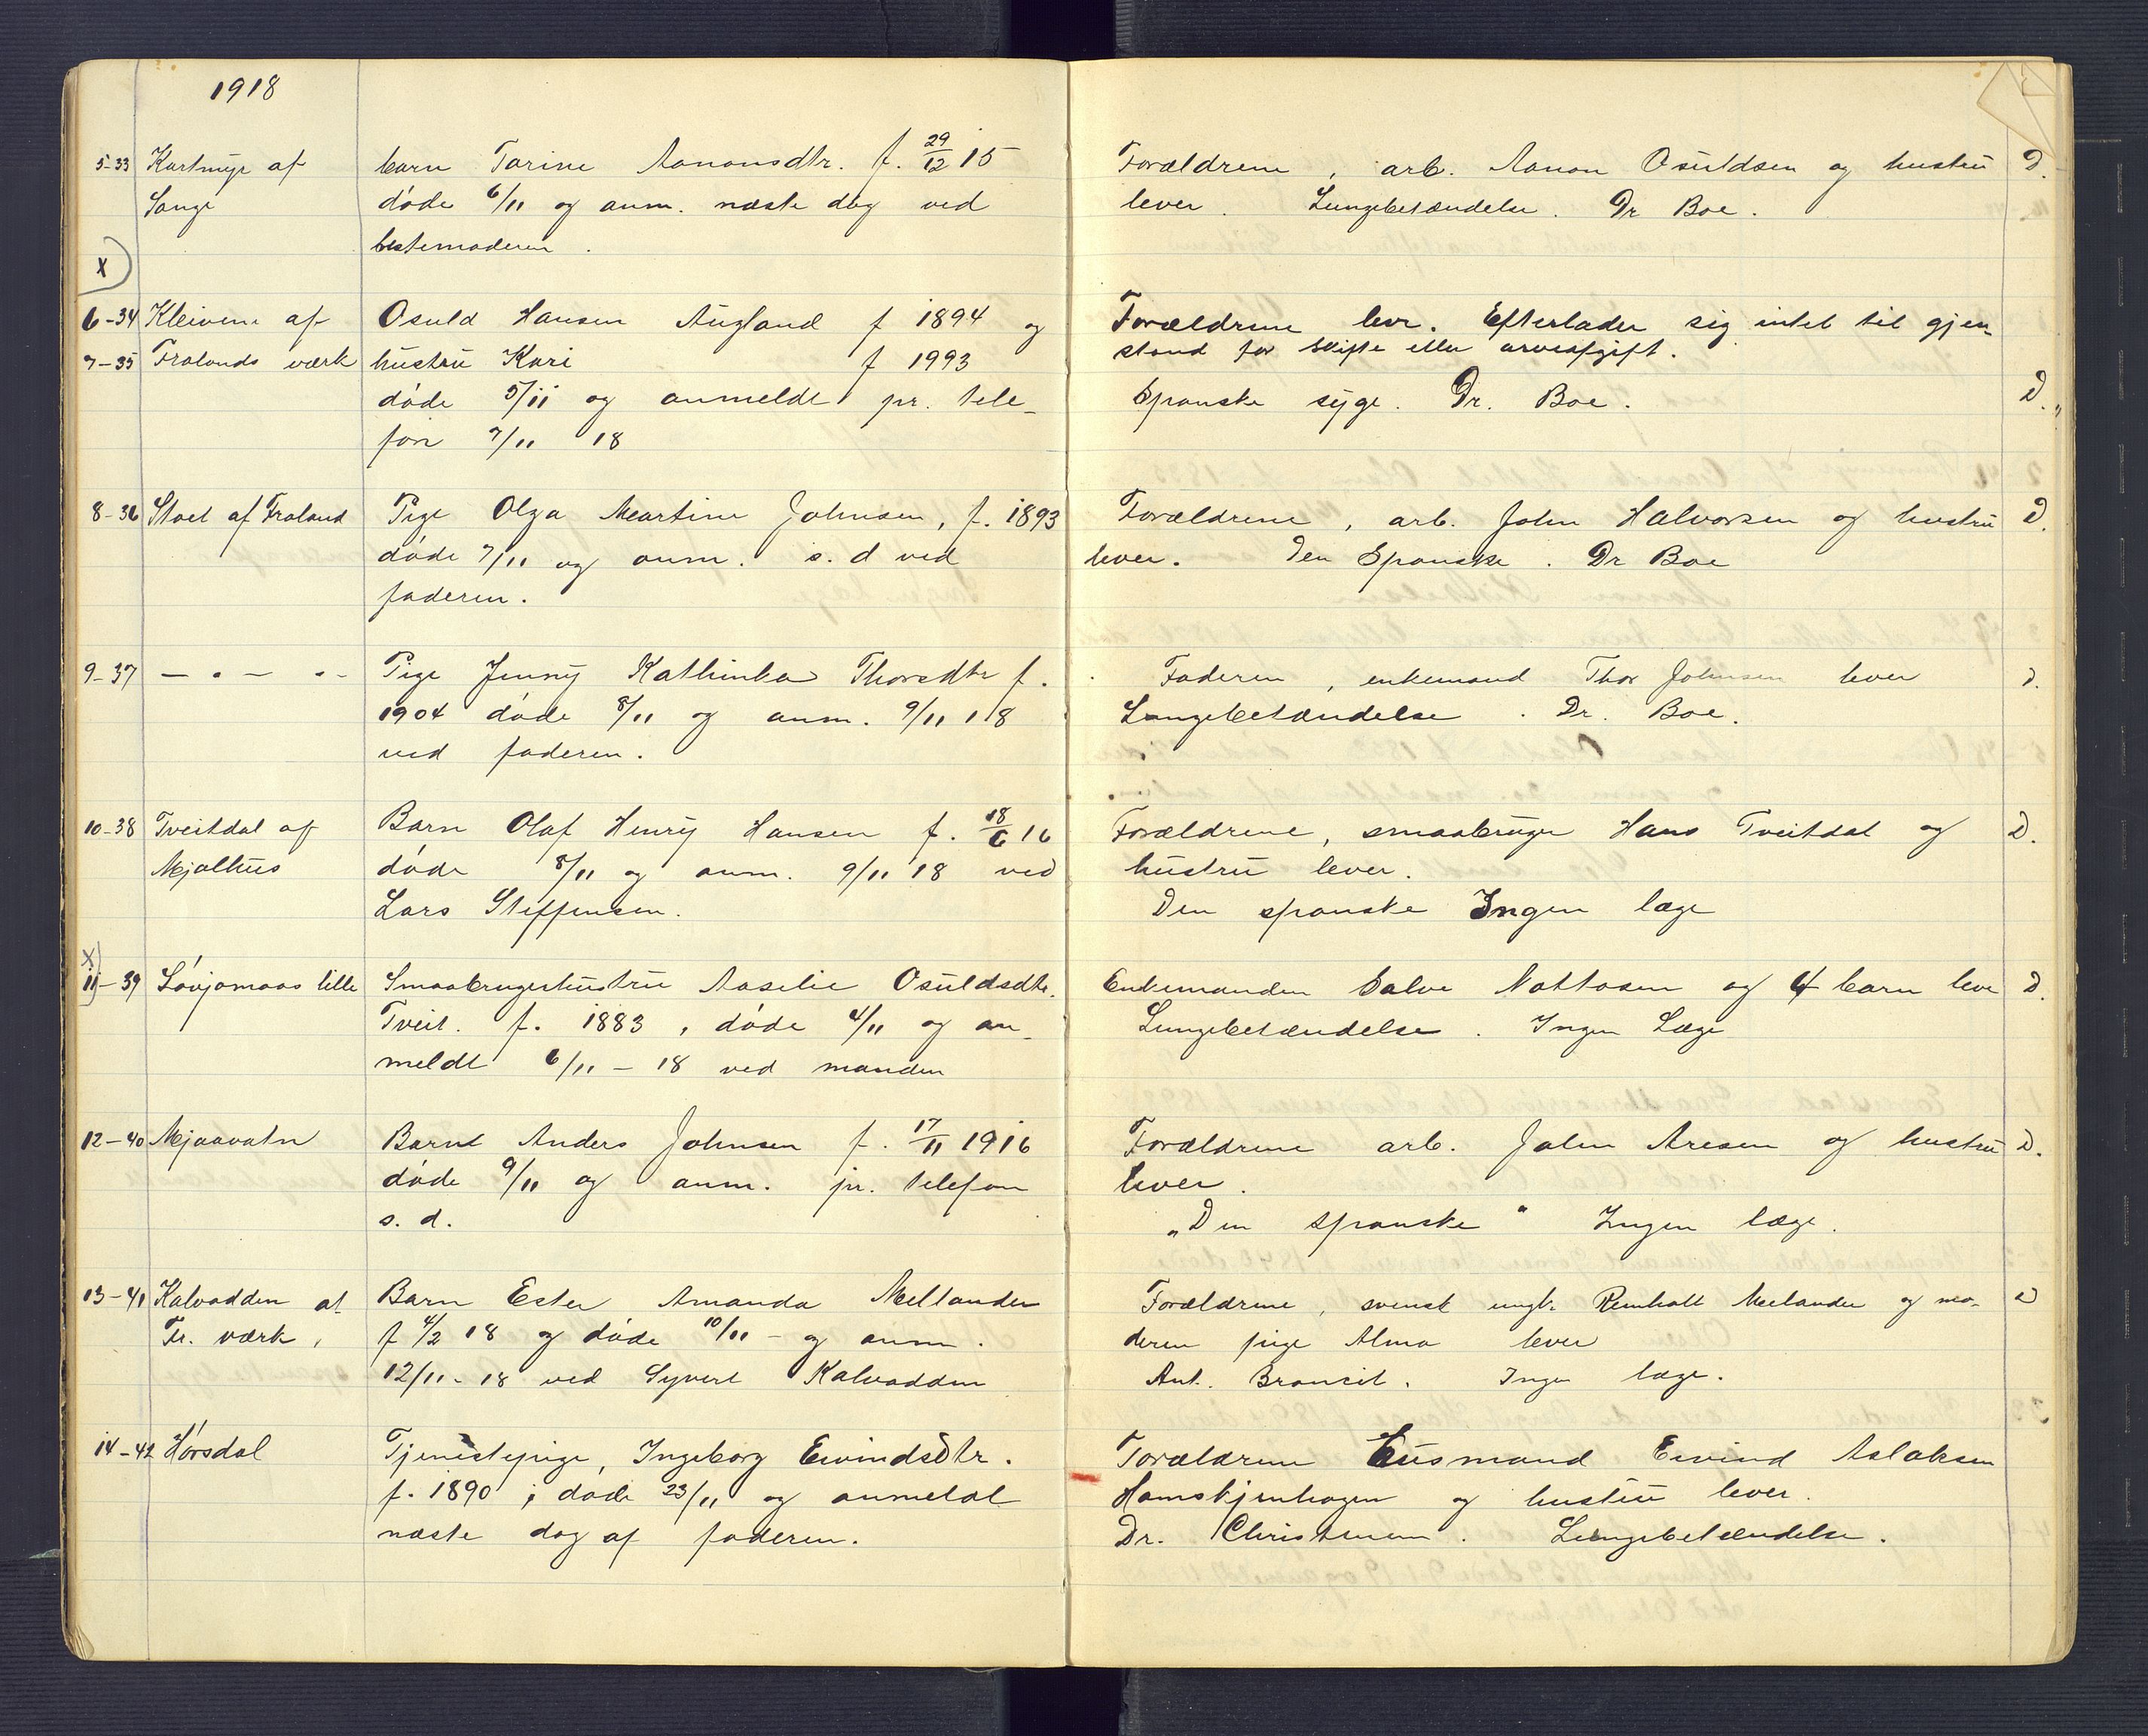 1918
5-33 Kartmyr af barn Torine Aanonsdtr. f. 29/12 15 Forældrene, arb. Aanon Osuldsen og hustru D.
Songe døde 6/11 og anm. næste dag ved lever. Lungebetændelse. Dr Boe.
bestemoderen.
X
6-34 Kleivene af Osuld Hansen Augland f 1894 og Forældrene lever. Efterlader sig intet til gjen
7-35 Frolands værk hustru Kari f 1993 stand for skifte eller arveafgift.
døde 5/11 og anmeldt pr. tele- Spanske syge. Dr. Boe. D. "
fon 7/11 18
8-36 Stoel af Froland Pige Olga Martine Johnsen, f. 1893 Forældrene, arb. John Halvorsen og hustru D.
døde 7/11 og anm. s. d ved lever. Den Spanske. Dr Boe
faderen.
9-37 — " — " - Pige Jenny Kathinka Thorsdtr f. Faderen, enkemand Thor Johnsen lever D.
1904 døde 8/11 og anm. 9/11 18 Lungebetændelse. Dr. Boe.
ved faderen.
10-38 Tveitdal af Barn Olaf Henry Hansen f. 18/6 16 Forældrene, smaabruger Hans Tveitdal og D.
Mjølhus døde 8/11 og anm. 9/11 18 ved hustru lever.
Lars Steffensen. Den spanske Ingen læge
X
11-39 Løvjomaas lille Smaabrugerhustru Aaselie Osuldsdtr. Enkemanden Salve Nottosen og 4 barn leve D.
Tveit. f. 1883, døde 4/11 og an- Lungebetændelse. Ingen Læge
meldt 6/11 - 18 ved manden
12-40 Mjaavatn Barnet Anders Johnsen f. 17/11 1916 Forældrene arb. John Aresen og hustru D.
døde 9/11 og anm. pr. telefon lever.
s. d. "Den spanske" Ingen læge.
13-41 Kalvodden af Barn Ester Amanda Mellander Forældrene, svensk ungk. Reinholt Melander og mo- D
Fr. værk, f 4/2 18 og døde 10/11 - og anm. deren pige Alma lever
12/11 - 18 ved Syvert Kalvodden Ant. Broncit. Ingen læge.
14-42 Hørsdal Tjenestepige, Ingeborg Eivindsdtr. Forældrene Husmand Eivind Aslaksen
f. 1890, døde 23/11 og anmeldt Homskjenhagen og hustru lever.
næste dag af faderen. Dr. Christensen. Lungebetændelse.